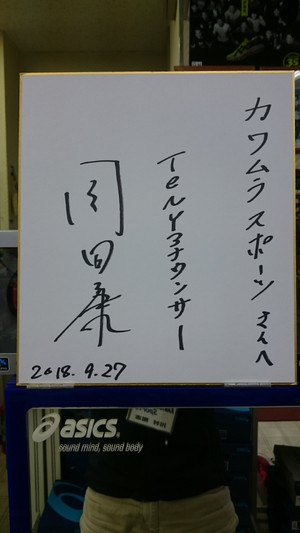 カワムラスポーツさんへ
TeNYアナウンサー
2018.9.27
asics
sound mind, sound body